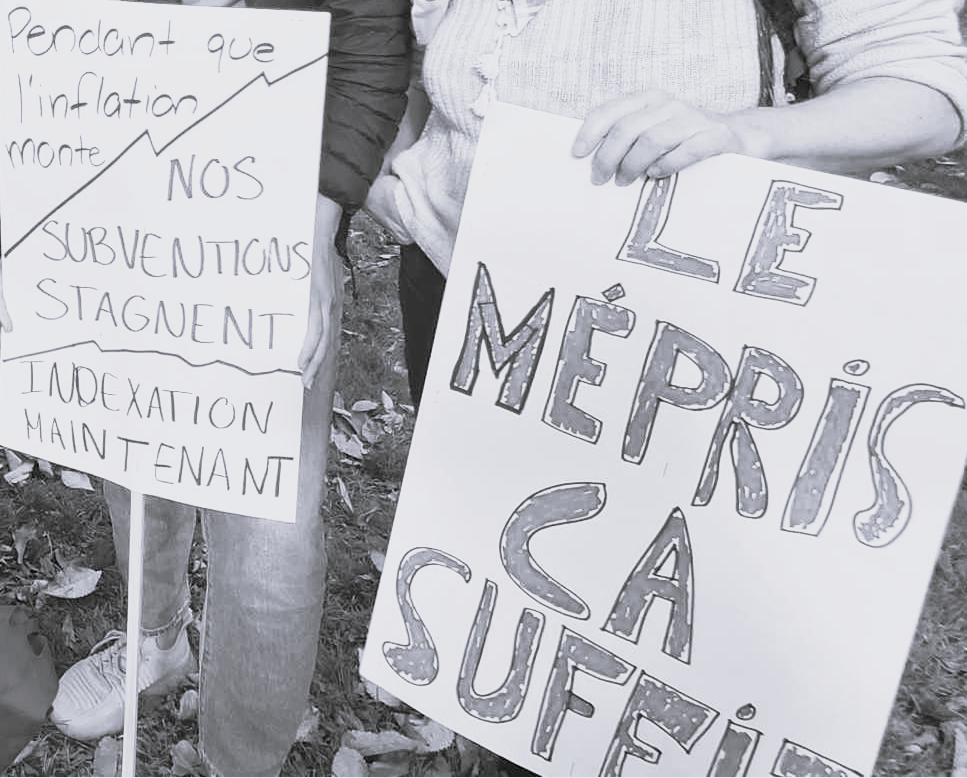 Pendant que
l'inflation
monte
NOS
SUBVENTIONS
STAGNENT
INDEXATION
MAINTENANT
LE
MÉPRiS
CA
SUFFiT